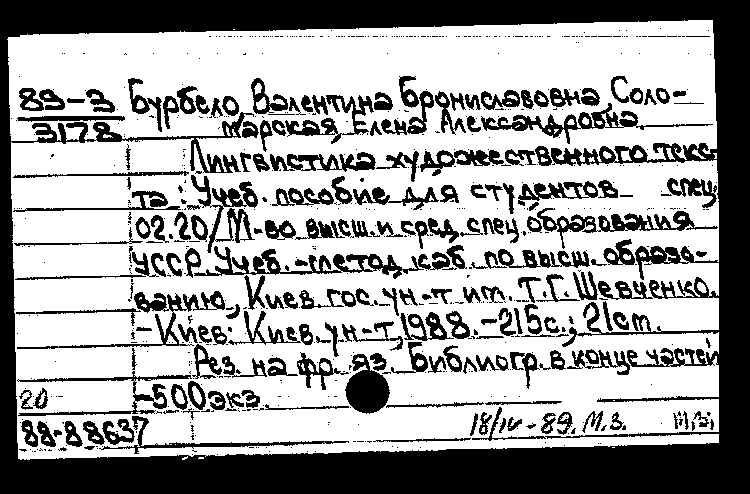 89-3 Бурбело, Валентина Брониславовна, Соло-
3178 марская, Елена Александровна.
Лингвистика художественного текс-
та : Учеб. пособие для студентов спец.
02.20/М-во высш. и сред. спец. образования
УССР. Учеб.-метод. каб. по высш. образо-
ванию, Киев. гос. ун-т им. Т.Г. Шевченко.
-Киев: Киев. ун-т, 1988.-215с.; 21см.
Рез. на фр. яз. Библиогр. в конце частей
20 -500экз.
88-88637 18/IV-89. М.З. М.З.